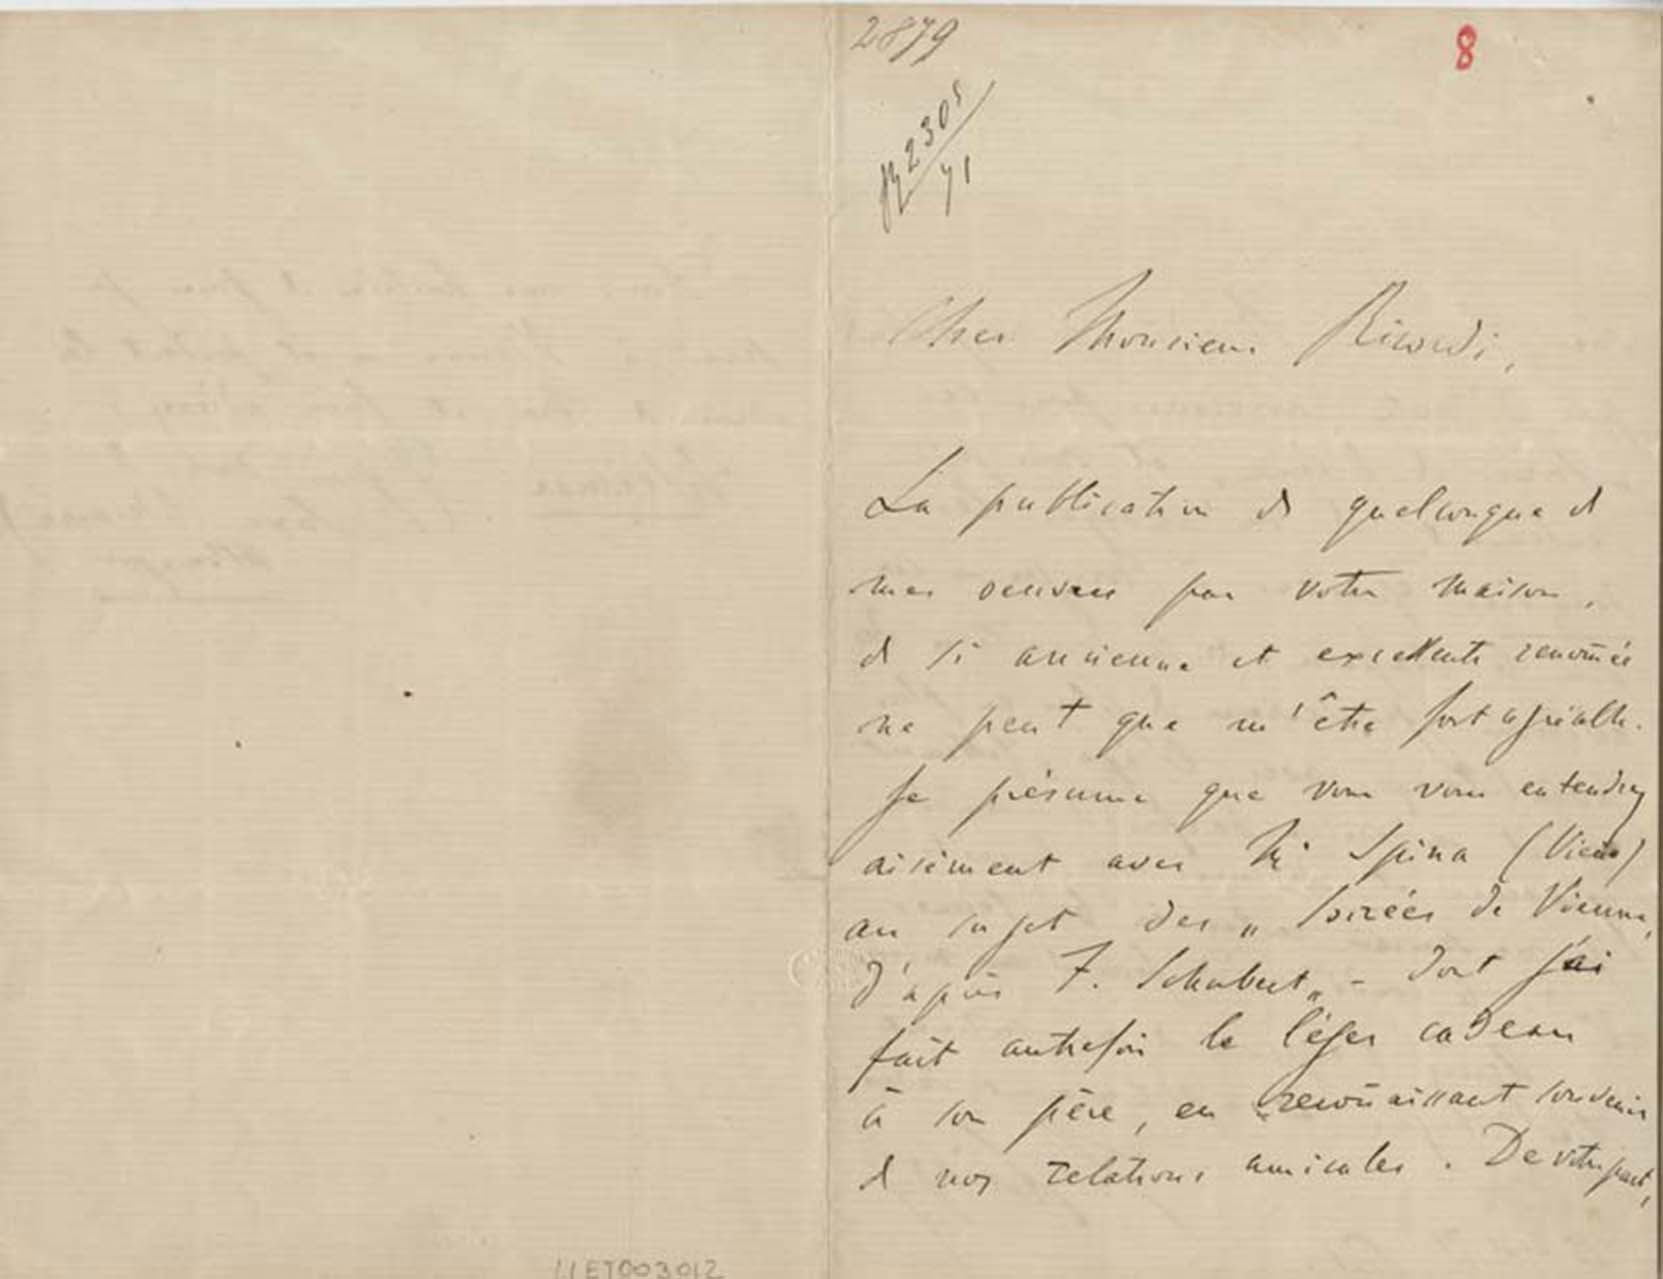 2879
8
2305
71
Cher Monsieur Ricordi,
La publication de quelconque de
mes oeuvres par votre maison,
de si ancienne et excellente renom̄ée
ne peut que m'être fort agréable.
Je présume que vous vous entendrez
aisément avec Mr Spina (Vienne)
au sujet des „Soirées de Vienne,
d'après F. Schubert„ - dont j'ai
fait autrefois le léger cadeau
à son père, en recon̄aissant souvenir
de nos relations amicales. De votre part,
LLET003012